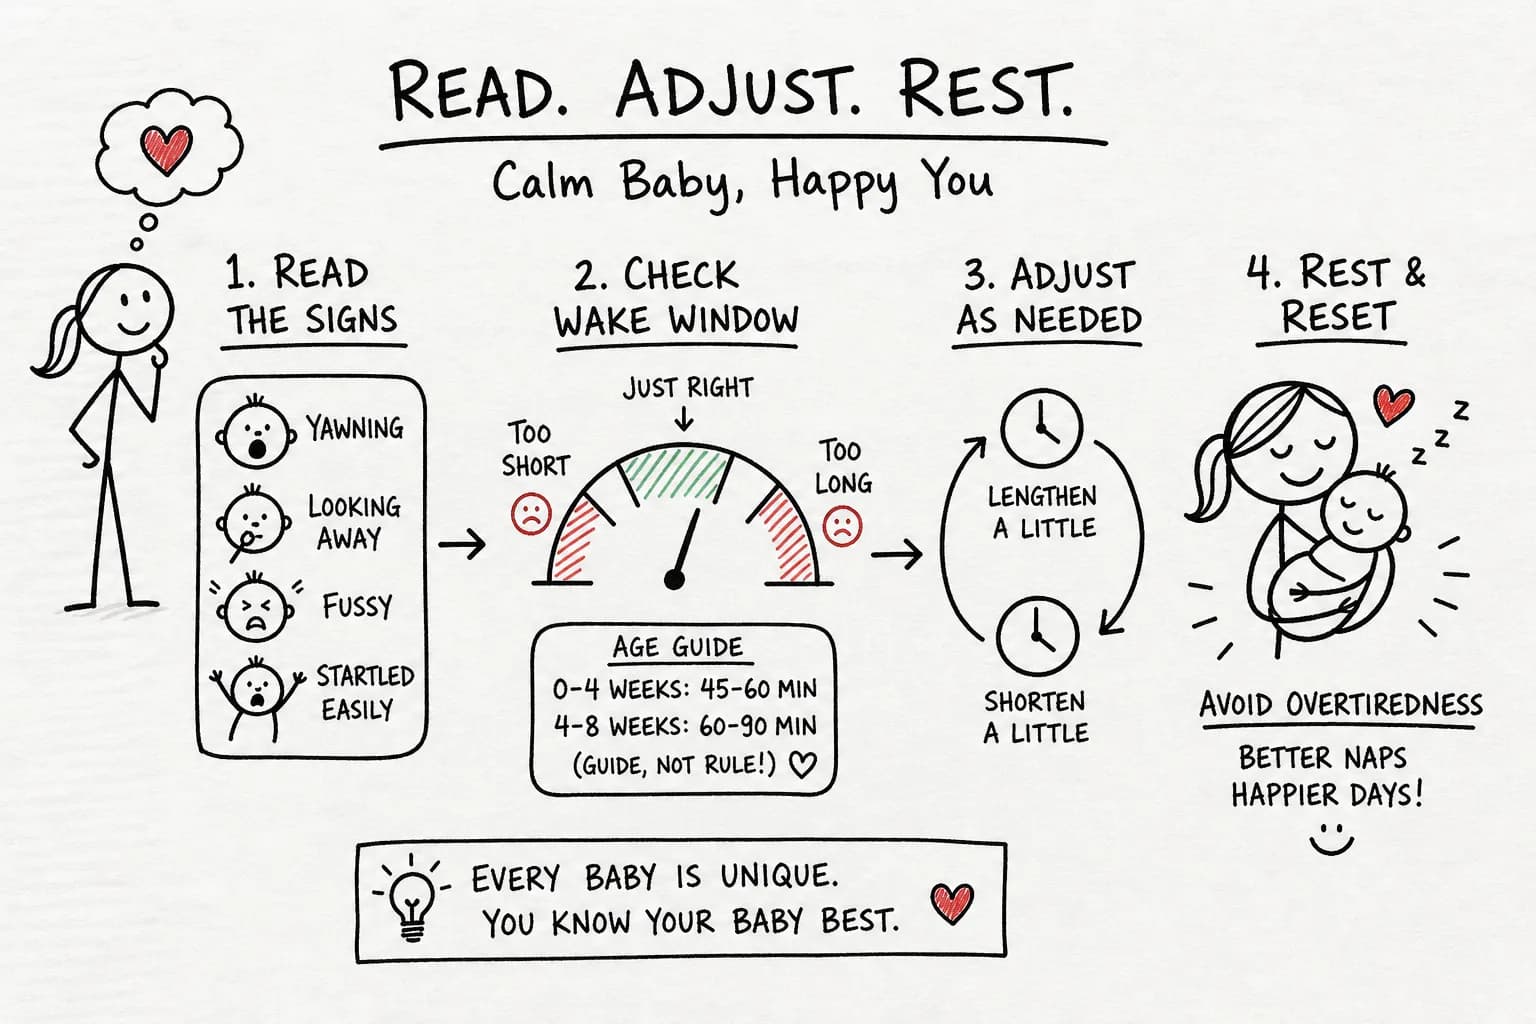 READ. ADJUST. REST.
Calm Baby, Happy You
1. READ
THE SIGNS
YAWNING
LOOKING
AWAY
FUSSY
STARTLED
EASILY
2. CHECK
WAKE WINDOW
JUST RIGHT
TOO
SHORT
TOO
LONG
AGE GUIDE
0-4 WEEKS: 45-60 MIN
4-8 WEEKS: 60-90 MIN
(GUIDE, NOT RULE!)
3. ADJUST
AS NEEDED
LENGTHEN
A LITTLE
SHORTEN
A LITTLE
4. REST &
RESET
z z z
AVOID OVERTIREDNESS
BETTER NAPS
HAPPIER DAYS!
EVERY BABY IS UNIQUE.
YOU KNOW YOUR BABY BEST.